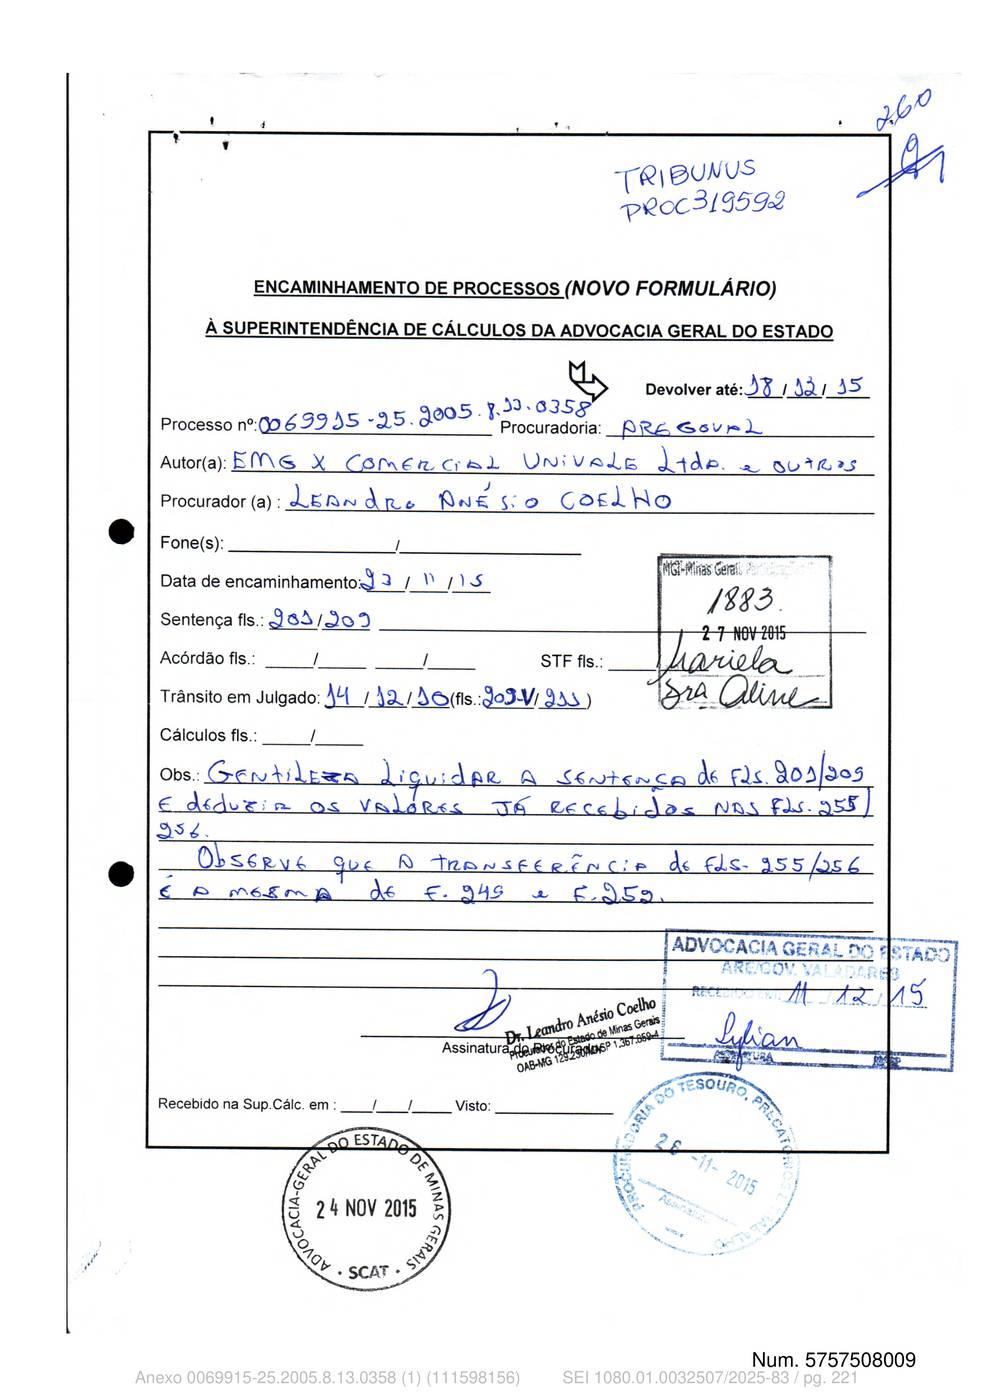 260
TRIBUNUS
PROC 319592
ENCAMINHAMENTO DE PROCESSOS (NOVO FORMULÁRIO)
À SUPERINTENDÊNCIA DE CÁLCULOS DA ADVOCACIA GERAL DO ESTADO
Devolver até: 18 / 12 / 15
Processo nº: 0069915-25.2005.8.13.0358 Procuradoria: AREGOVAL
Autor(a): EMG X COMERCIAL UNIVALE Ltda. e OUTROS
Procurador (a) : LEANDRO ANÉSIO COELHO
Fone(s): /
Data de encaminhamento: 23 / 11 / 15
MGI-Minas Gerais Participações
1883.
Sentença fls.: 201/209
27 NOV 2015
Acórdão fls.: / / STF fls.:
Mariela
Dra Aline
Trânsito em Julgado: 14 / 12 / 10 (fls.: 209-V/ 211 )
Cálculos fls.: /
Obs.: GENTILEZA LIQUIDAR A SENTENÇA de FLS. 201/209
E deduzir OS VALORES JÁ RECEBIDOS NAS FLS. 255/
256.
ObSERVE QUE A TRANSFERÊNCIA de FLS- 255/256
É A MESMA de F. 249 e F. 252.
ADVOCACIA GERAL DO ESTADO
ARE/GOV. VALADARES
RECEBIDO EM: 11 / 12 / 15
Sylian
ASSINATURA MASP
Dr. Leandro Anésio Coelho
Procurador do Estado de Minas Gerais
Assinatura do Procurador
Recebido na Sup.Cálc. em : / / Visto:
ADVOCACIA-GERAL DO ESTADO DE MINAS GERAIS
24 NOV 2015
· SCAT ·
PROCURADORIA DO TESOURO, PRECATÓRIOS E TRABALHO
26 -11- 2015
Assinatura
Num. 5757508009
Anexo 0069915-25.2005.8.13.0358 (1) (111598156) SEI 1080.01.0032507/2025-83 / pg. 221